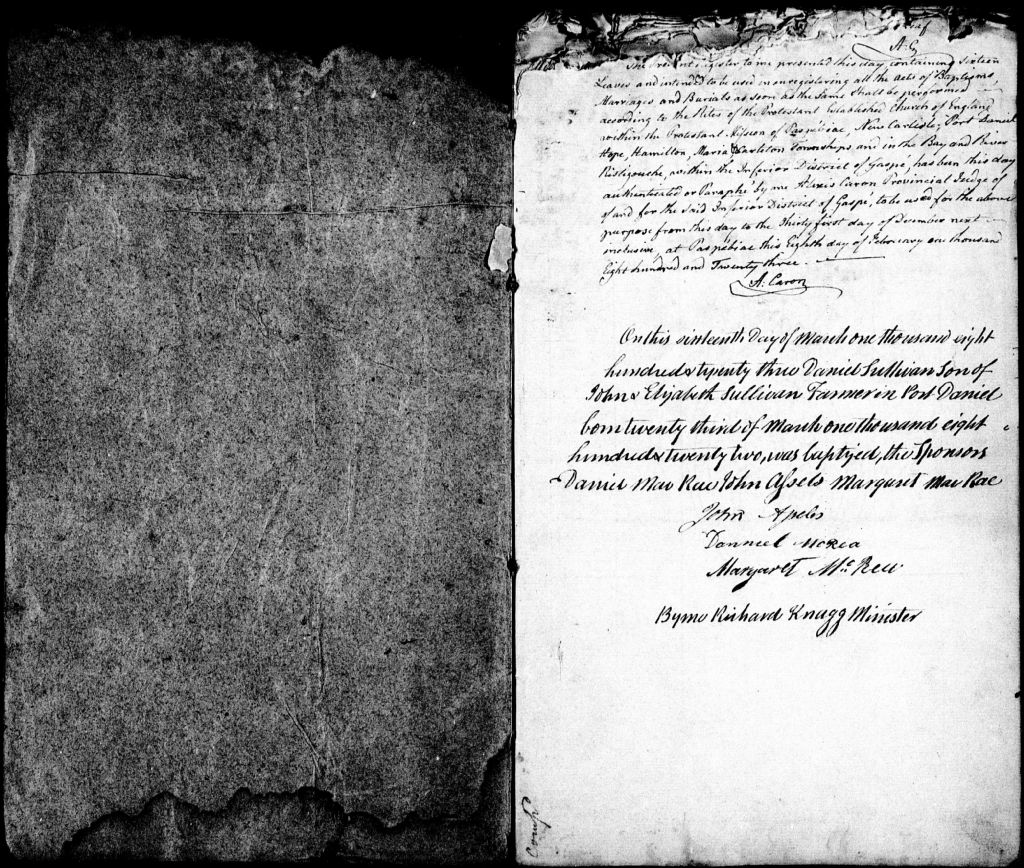 A. C.
The Present Register to me presented this day containing Sixteen
Leaves and intended to be used in enregistering all the Acts of Baptisms,
Marriages and Burials as soon as the same shall be performed
according to the Rites of the Protestant Established Church of England
within the Protestant Mission of Paspébiac, New Carlisle, Port Daniel
Hope, Hamilton, Maria & Carleton Townships and in the Bay and River
Ristigouche, within the Inferior District of Gaspé, has been this day
authenticated or Paraphé by me Alexis Caron Provincial Judge of
of and for the Said Inferior District of Gaspé, to be used for the above
purpose from this day to the Thirty first day of December next
inclusive, at Paspébiac this Eighth day of February one thousand
Eight hundred and Twenty three.
A. Caron
On this sixteenth Day of March one thousand eight
hundred & twenty three Daniel Sullivan Son of
John & Elizabeth Sullivan Farmer in Port Daniel
born twenty third of March one thousand eight
hundred & twenty two, was baptized, the Sponsors
Daniel Mac Rae John Assels Margaret Mac Rae
John Apeles
Danniel McRea
Margaret Mc Reu
By me Richard Knagg Minister